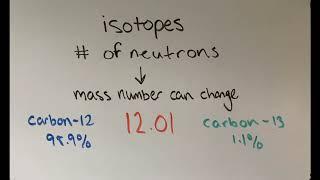 isotopes
# of neutrons
↓
mass number can change
carbon-12 12.01 carbon-13
98.9% 1.1%